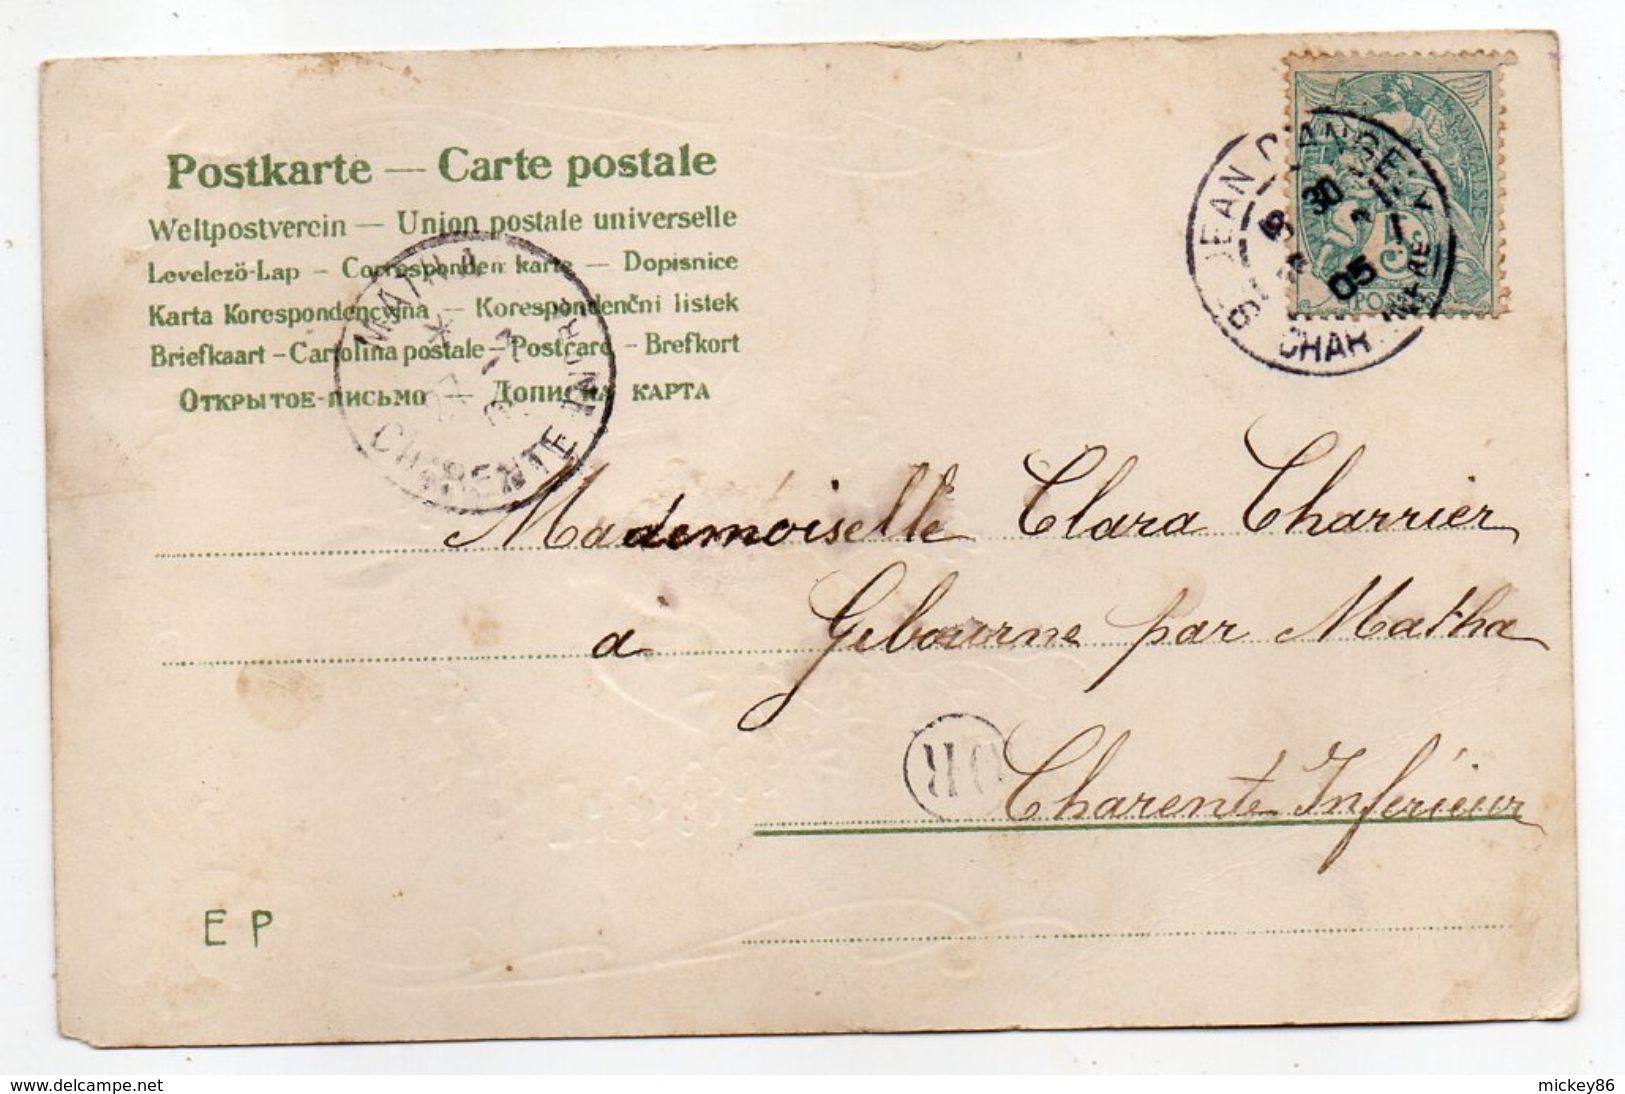 Postkarte — Carte postale
Weltpostverein — Union postale universelle
Levelezö-Lap – Correspondenzkarte — Dopisnice
Karta Korespondencyjna – Korespondenční listek
Briefkaart – Cartolina postale – Postcard – Brefkort
Открытое-письмо — Дописна карта
MATHA
CHARENTE INFRE
ST JEAN D'ANGELY
30
05
CHARTE INFRE
FRANÇAISE
5
POSTES
Mademoiselle Clara Charrier
a Gibourne par Matha
OR
Charente Inférieur
E P
www.delcampe.net
mickey86